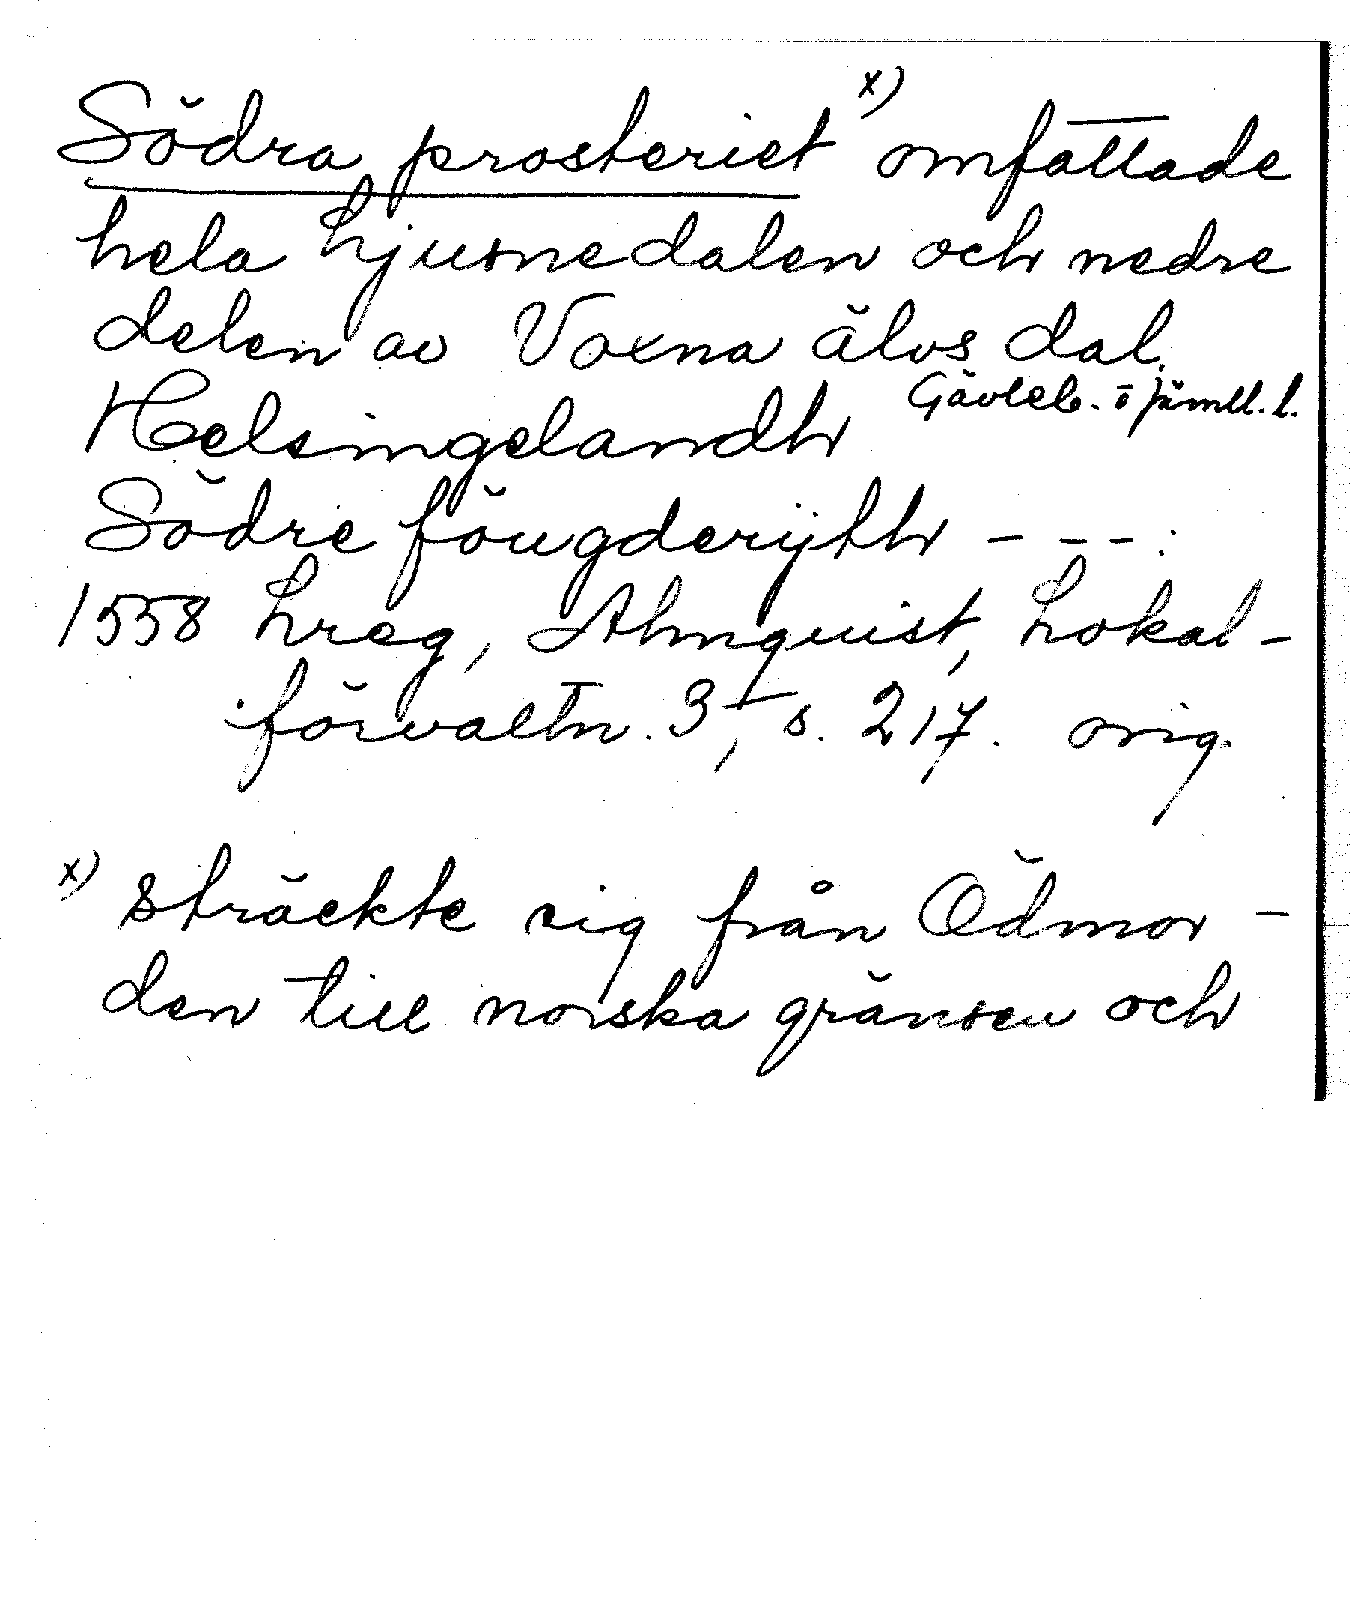 Södra prosteriet x) omfattade
hela Ljusnedalen och nedre
delen av Voxna älvs dal.
Gävleb. o Jämtl. l.
Helsingelandh
Södre föugderijthh - - - :
1558 Lreg, Almquist, Lokal-
förvaltn. 3, s. 217. orig.
x) sträckte sig från Ödmor-
den till norska gränsen och